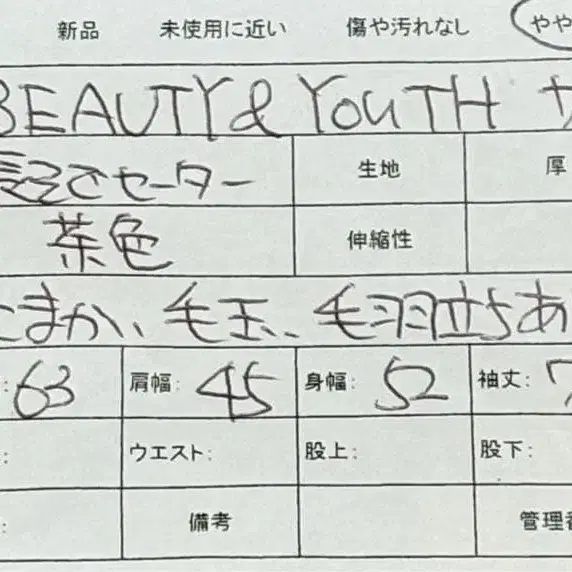 新品 未使用に近い 傷や汚れなし やや
BEAUTY & YOUTH サ
長そでセーター 生地 厚
茶色 伸縮性
こまか、毛玉、毛羽立ちあ
: 63 肩幅: 45 身幅: 52 袖丈: 7
: ウエスト: 股上: 股下:
: 備考 管理番